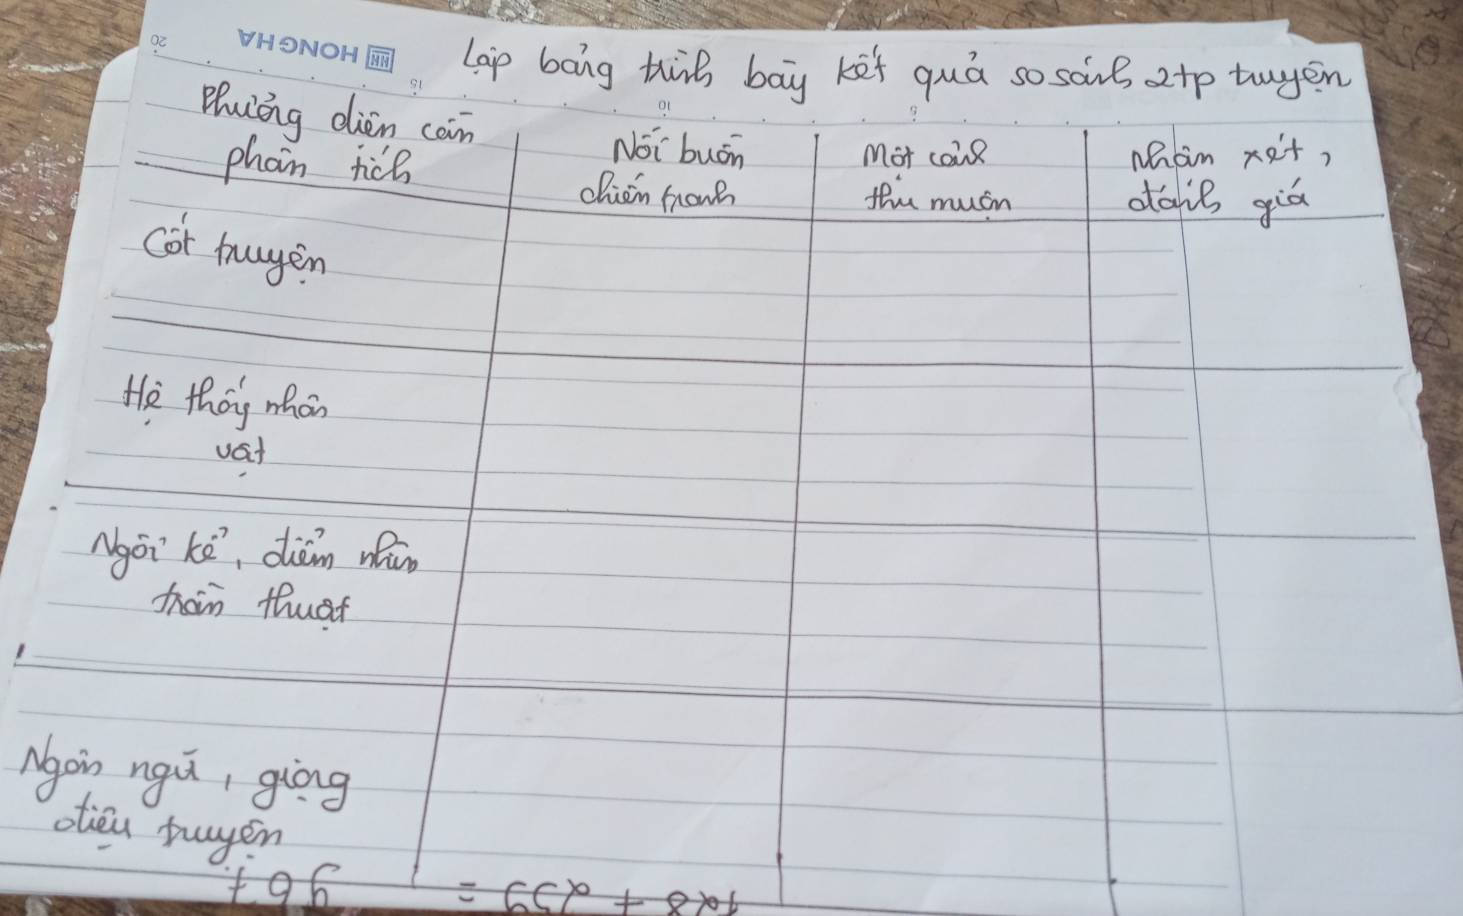 HONG HA
20
15
10
5
Lập bảng trình bày kết quả so sánh 2 tp truyện
Phương diện cần phân tích
Nỗi buồn chiến tranh
Một cảnh thu muộn
Nhận xét, đánh giá
Cốt truyện
Hệ thống nhân vật
Ngôi kể, điểm nhìn trần thuật
Ngôn ngữ, giọng điệu truyện